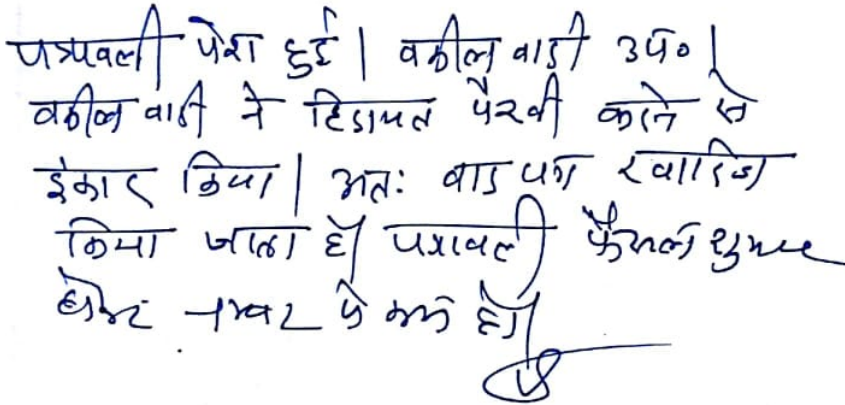 पत्रावली पेश हुई। वकील वादी उप०।
वकील वादी ने हिदायत पैरवी करने से
इंकार किया। अतः वाद पत्र खारिज
किया जाता है। पत्रावली फैसल शुमार
होकर नम्बर से कम हो।